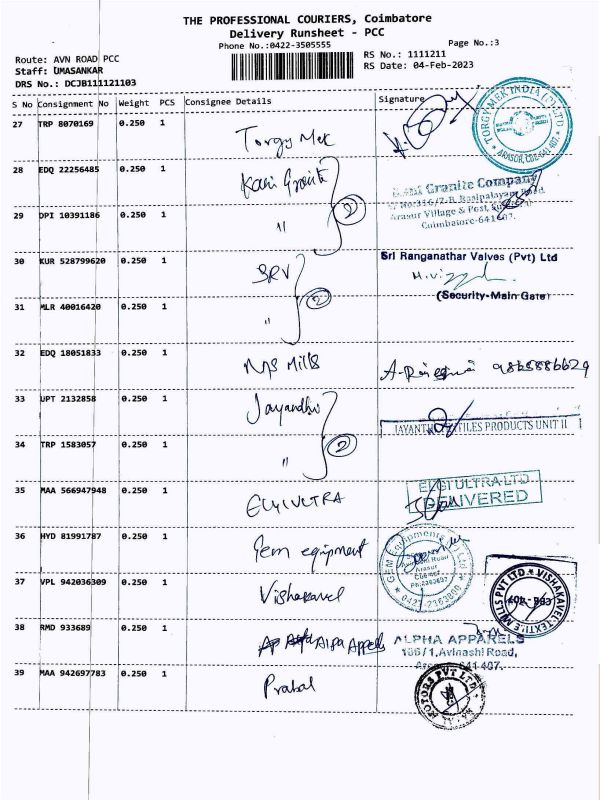 THE PROFESSIONAL COURIERS, Coimbatore
Delivery Runsheet - PCC
Phone No.:0422-3505555
Page No.:3
Route: AVN ROAD PCC
RS No.: 1111211
Staff: UMASANKAR
RS Date: 04-Feb-2023
DRS No.: DCJB111121103
S No Consignment No Weight PCS Consignee Details Signature
27 TRP 8070169 0.250 1 Torgy Mek
TORGY MEK INDIA (P) LTD
ARASUR, CBE-641 407.
28 EDQ 22256485 0.250 1 Kani Granite
Rani Granite Company
Arasur Village & Post,
Coimbatore-641407.
29 DPI 10391186 0.250 1 "
2
30 KUR 528799620 0.250 1 SRV
Sri Ranganathar Valves (Pvt) Ltd
(Security-Main Gate)
31 MLR 40016420 0.250 1 "
2
32 EDQ 18051833 0.250 1 Mills
33 UPT 2132858 0.250 1 Jayandhi
TILES PRODUCTS UNIT II
34 TRP 1583057 0.250 1 "
2
35 MAA 566947948 0.250 1 ELGI ULTRA
ELGI ULTRA LTD
DELIVERED
36 HYD 81991787 0.250 1 Gem equipment
GEM Equipments (P) Ltd
Arasur
37 VPL 942036309 0.250 1 Vishakavel
VISHAKAVEL TEXTILE MILLS PVT LTD
CBE-407
38 RMD 933689 0.250 1
ALPHA APPARELS
166/1,Avinashi Road,
641 407.
39 MAA 942697783 0.250 1 Prabal
MOTORS PVT LTD